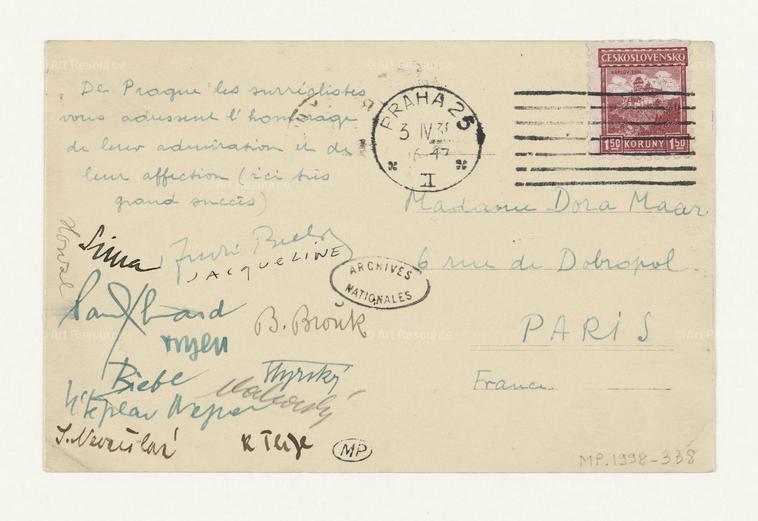 De Prague les surréalistes
vous adressent l'hommage
de leur admiration et de
leur affection (ici très
grand succès)
Honzl
Sima
André Breton
JACQUELINE
Paul Eluard
B. Brouk
Toyen
Biebl
Štyrský
Vítězslav Nezval
Makovský
K Teige
PRAHA 25
3 IV 35
I
ČESKOSLOVENSKO
1 50 KORUNY 1 50
Madame Dora Maar
6 rue de Dobropol
PARIS
France
ARCHIVES
NATIONALES
MP
MP.1998-338
© Art Resource